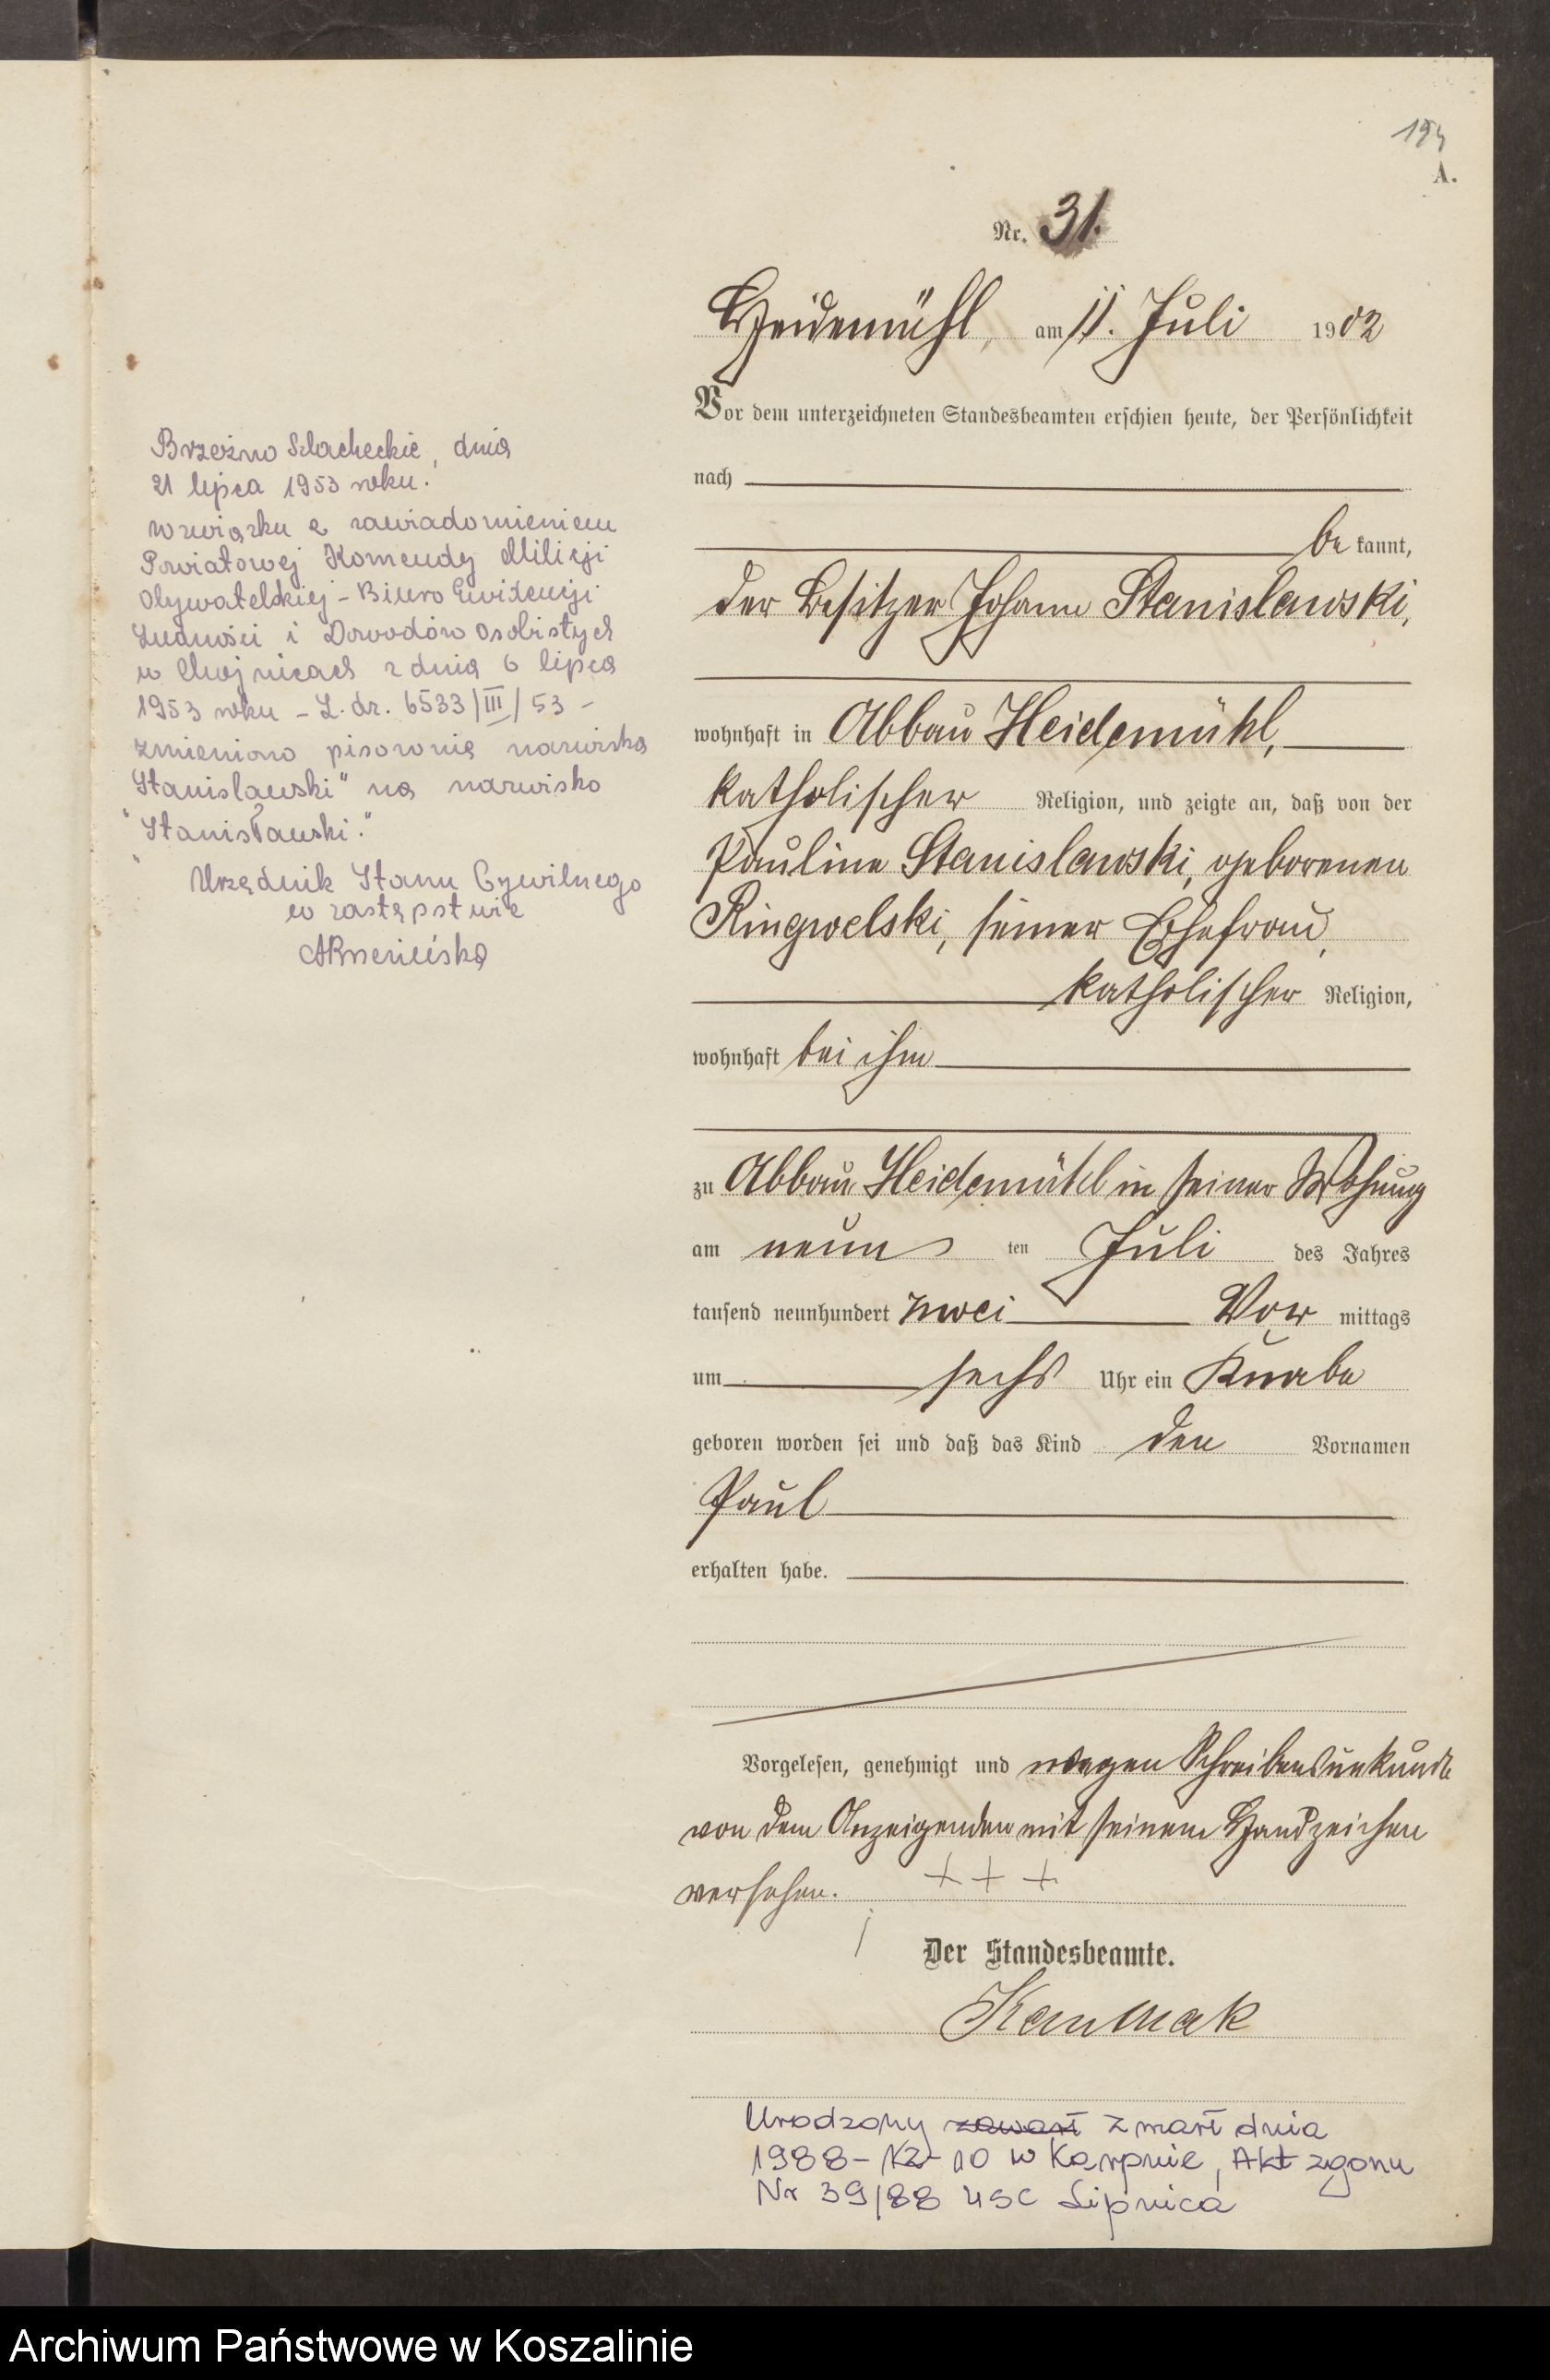 194
A.
Nr. 31.
Heidemühl, am 11. Juli 1902
Vor dem unterzeichneten Standesbeamten erschien heute, der Persönlichkeit
nach
be kannt,
der Besitzer Johann Stanislawski,
wohnhaft in Abbau Heidemühl,
katholischer Religion, und zeigte an, daß von der
Pauline Stanislawski, geborenen
Ringwelski, seiner Ehefrau,
katholischer Religion,
wohnhaft bei ihm
zu Abbau Heidemühl in seiner Wohnung
am neun ten Juli des Jahres
tausend neunhundert zwei Vor mittags
um sechs Uhr ein Knabe
geboren worden sei und daß das Kind den Vornamen
Paul
erhalten habe.
Vorgelesen, genehmigt und wegen Schreibensunkunde
von dem Anzeigenden mit seinem Handzeichen
versehen. + + +
Der Standesbeamte.
Urodzony zawarł zmarł dnia
1988-12-10 w Karpnie, Akt zgonu
Nr 39/88 USC Lipnica
Brzeźno Szlacheckie, dnia
21 lipca 1953 roku.
W związku z zawiadomieniem
Powiatowej Komendy Milicji
Obywatelskiej - Biuro Ewidencji
Ludności i Dowodów Osobistych
w Chojnicach z dnia 6 lipca
1953 roku - L. dz. 6533/III/53 -
zmieniono pisownię nazwiska
Stanislawski" na nazwisko
"Stanisławski."
Urzędnik Stanu Cywilnego
w zastępstwie
Archiwum Państwowe w Koszalinie